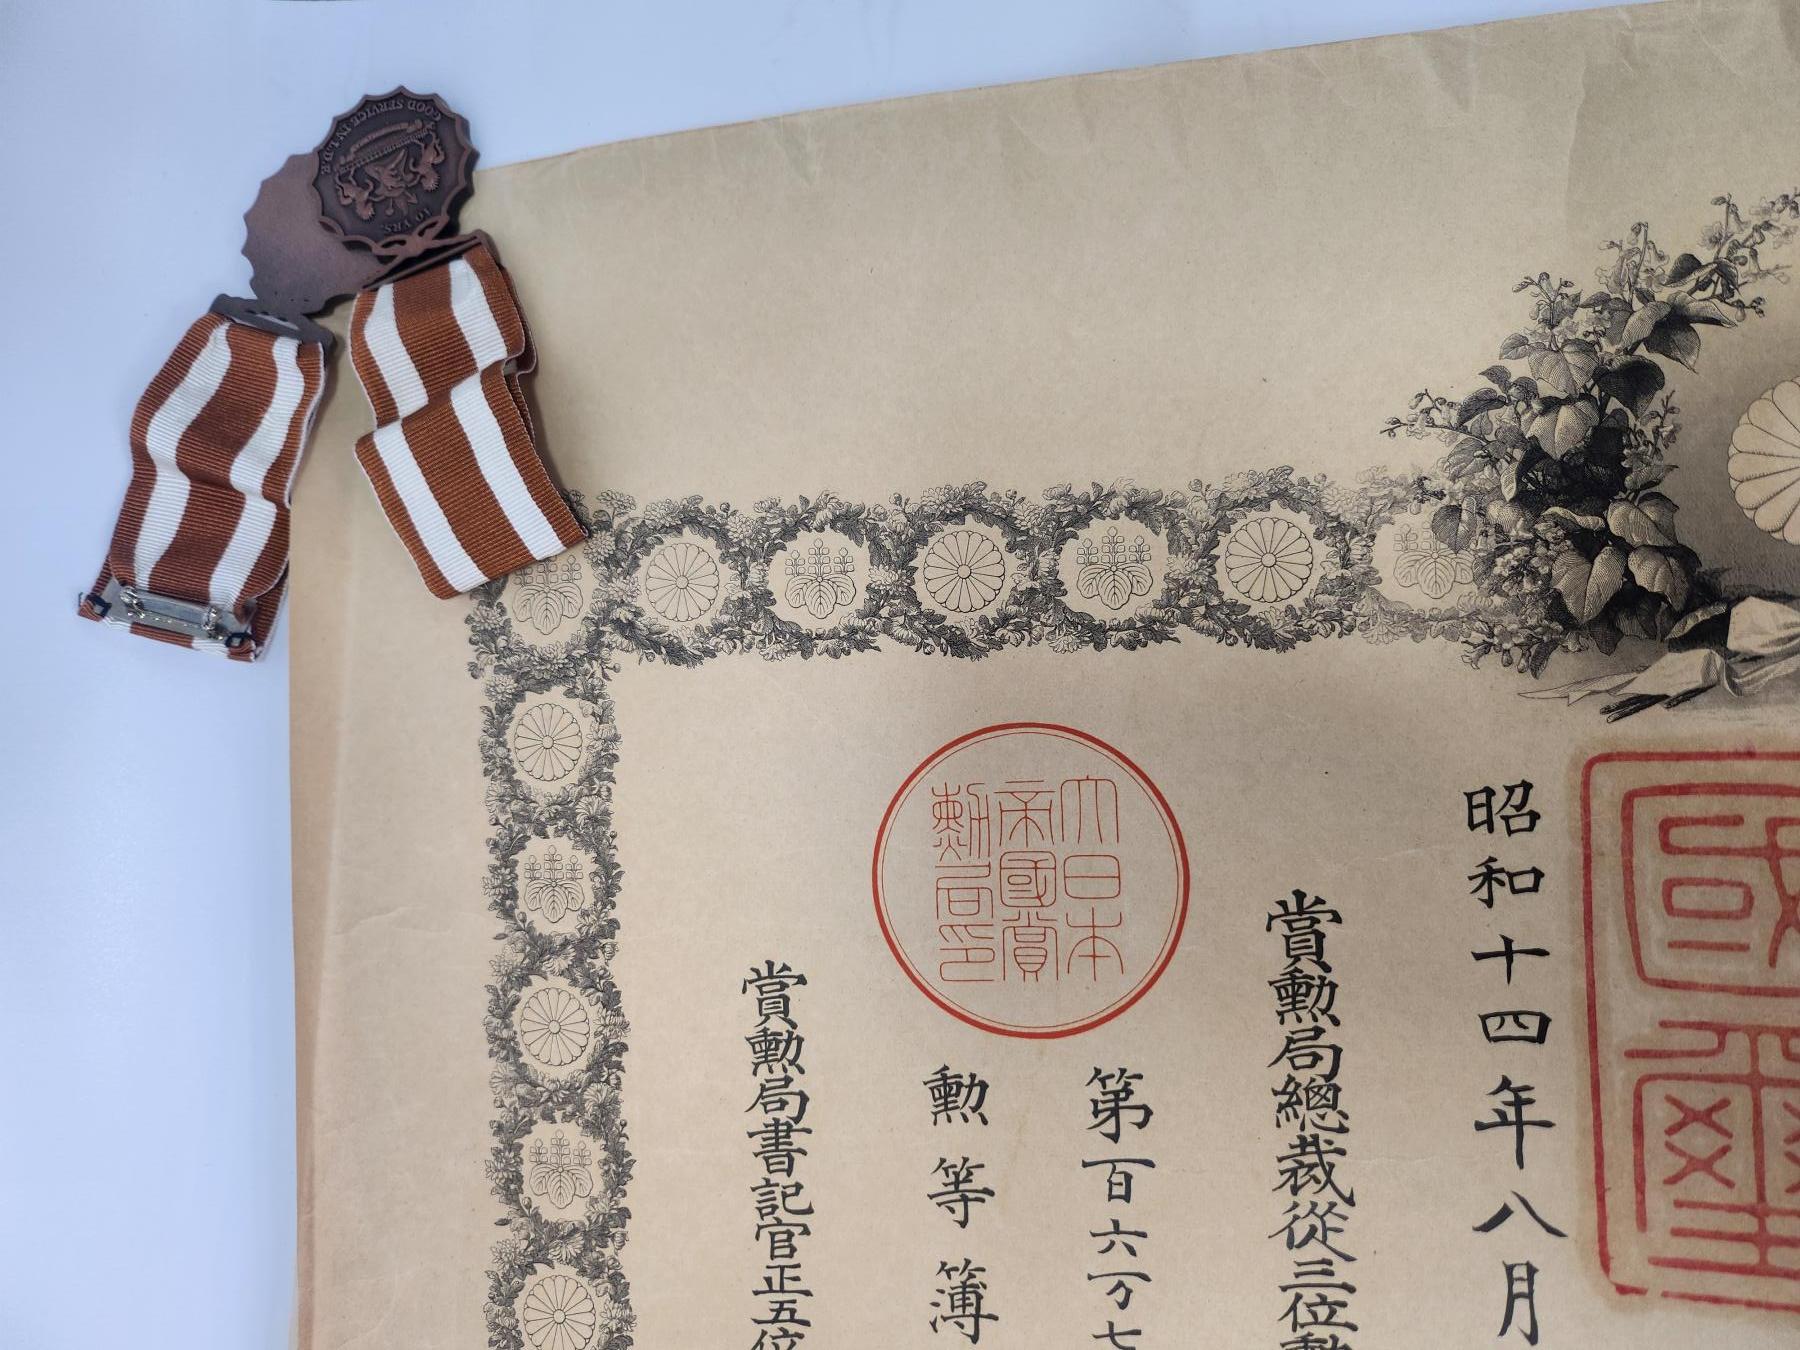 GOOD SERVICE IN L.D.F.
10 YRS.
國璽
昭和十四年八月
賞勳局總裁從三位勳
大日本
帝國賞
勳局印
第百六万七
勳等簿
賞勳局書記官正五位